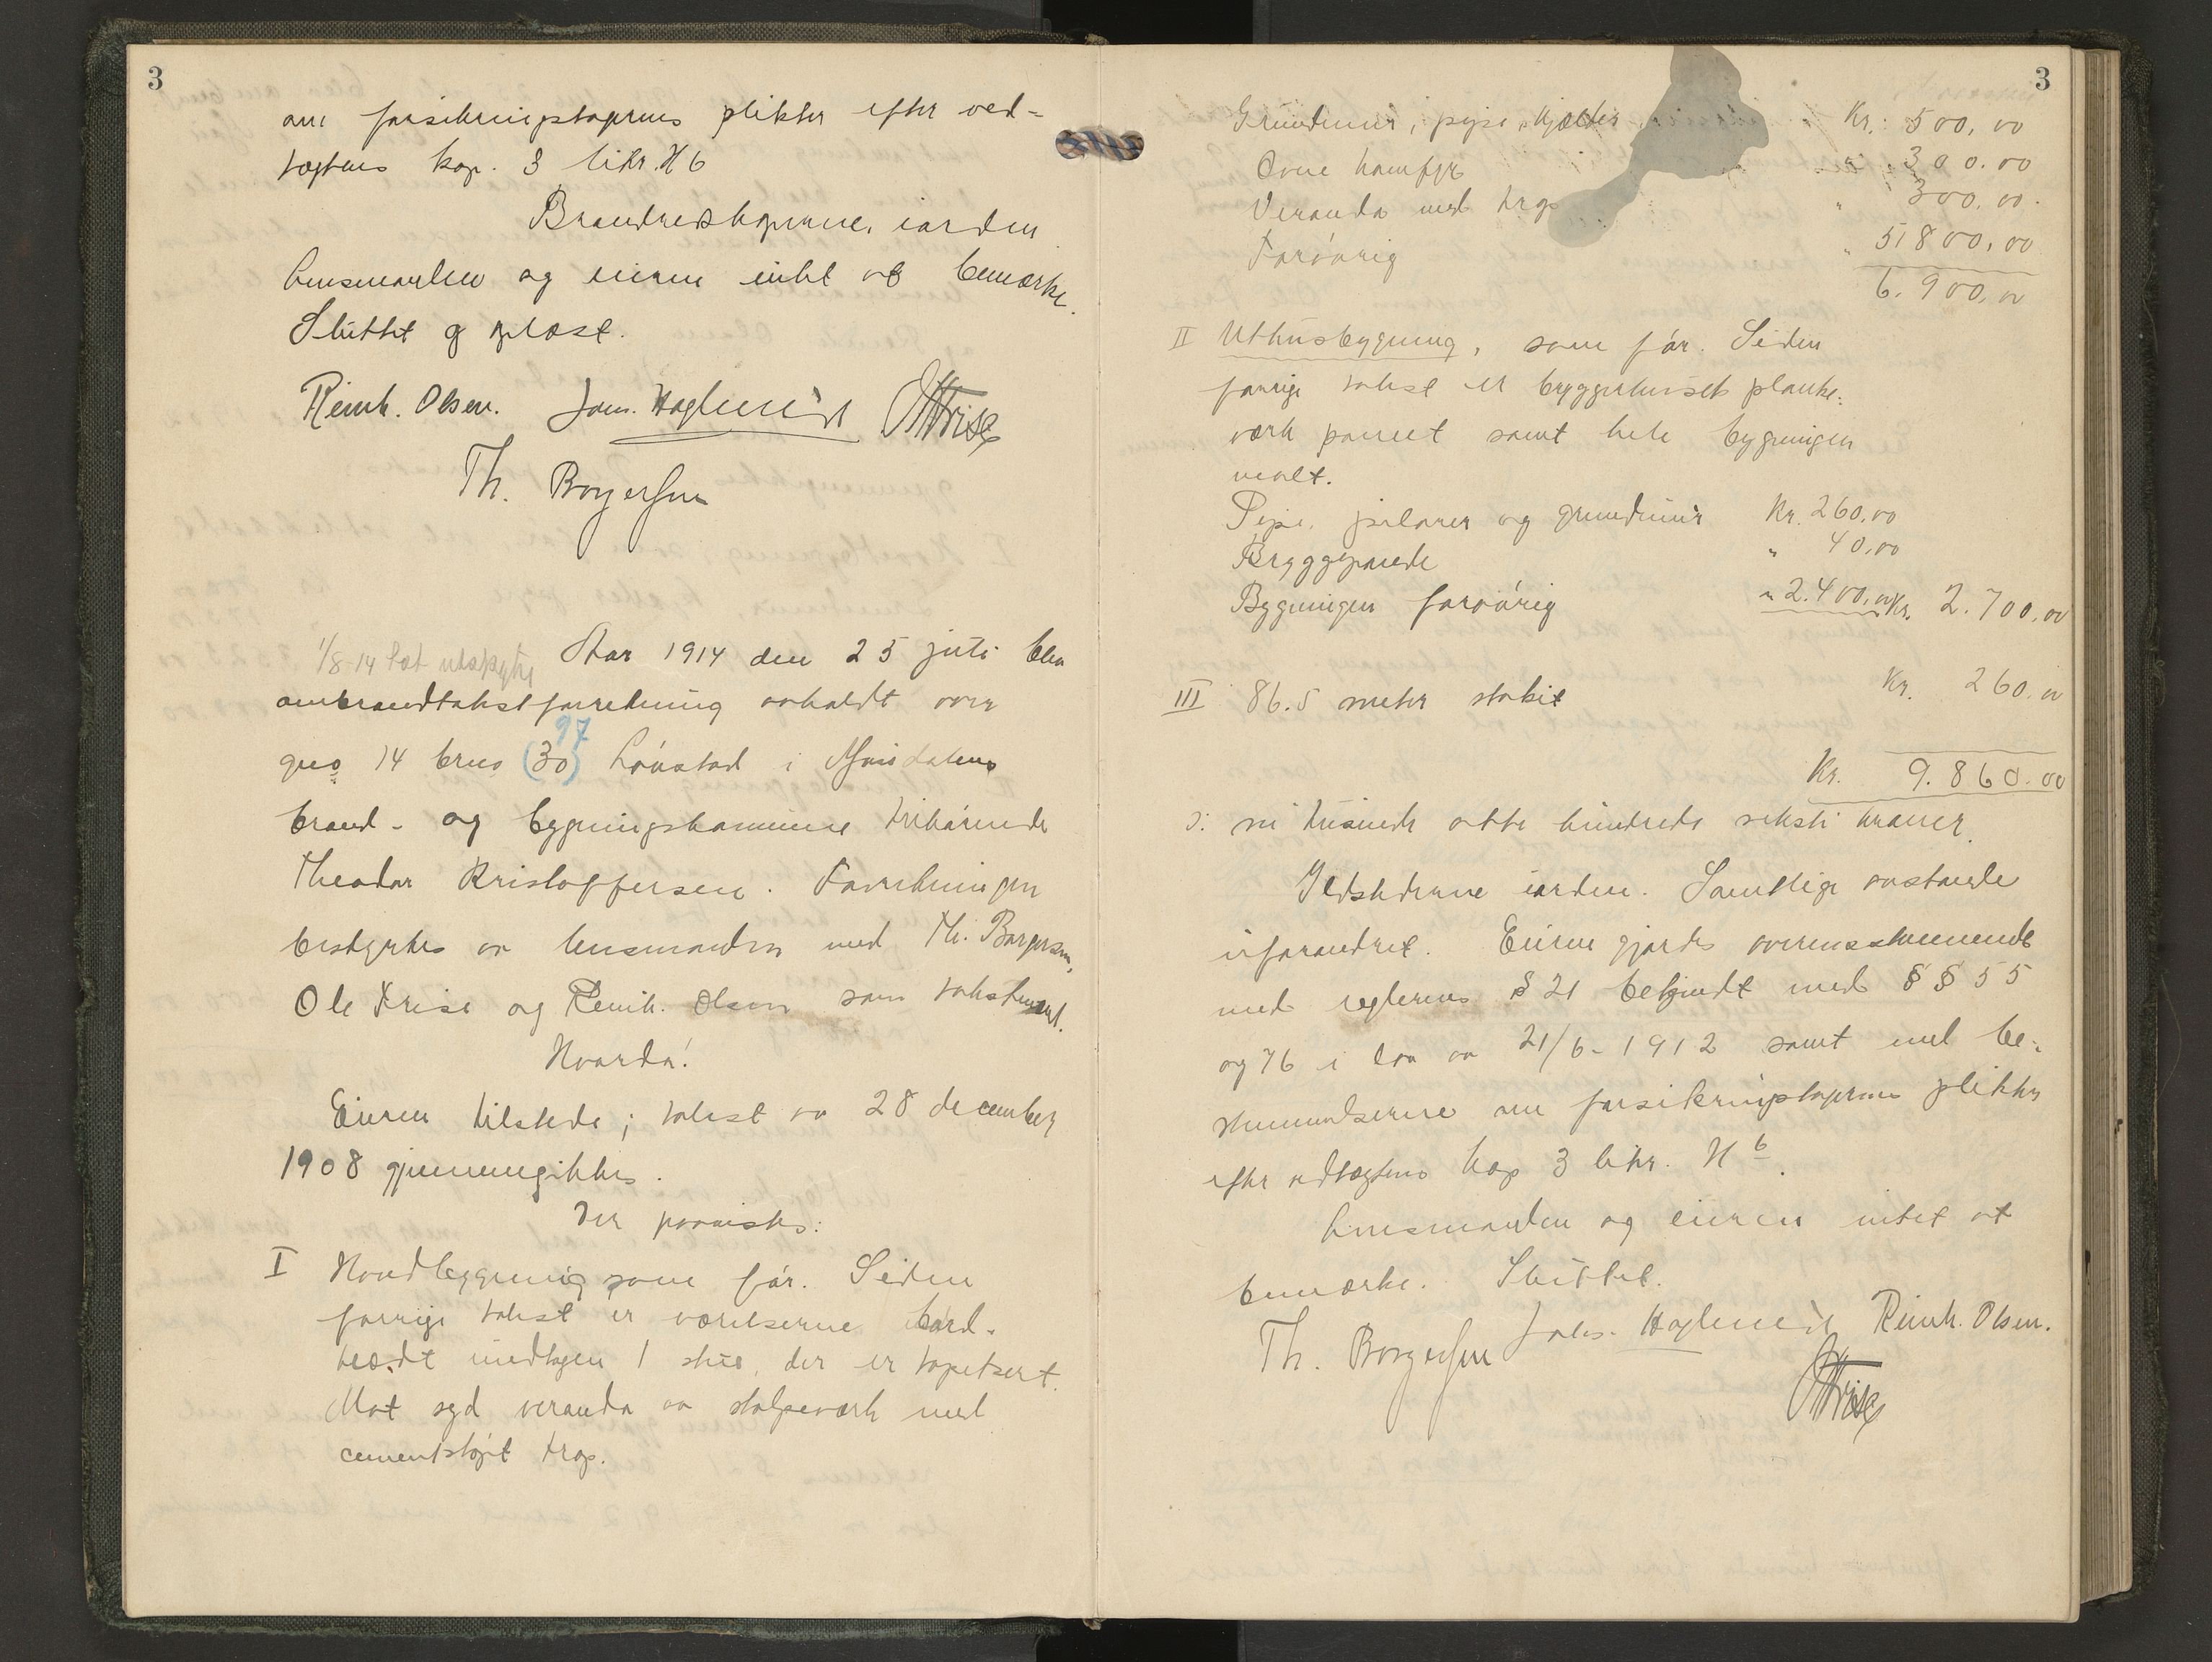 3
om forsikringstagerens plikter efter ved-
tægtens kap. 3 litr. H 6
Brandredskaperne i orden
Lensmanden og eieren intet at bemerke.
Sluttet og oplæst.
Reinh. Olsen. Johs. Haglund O Frise
Th. Borgersen
1/8-14 Tat utskrift
Aar 1914 den 25 juli blev
ombrandtakstforretning avholdt over
gno 14 bruo (30) 97 Løvstad i Mysdalens
brand- og bygningskommune tilhørende
Theodor Kristoffersen. Forretningen
bestyrtes av lensmanden med Th. Borgersen,
Ole Frise og Reinh. Olsen som takstmænd.
Hvorda!
Eieren tilstede; takst av 28 december
1908 gjennemgikkes.
Der paavistes:
I Hovedbygning som før. Siden
forrige takst er værelserne bord-
klædt undtagen 1 stue, der er tapetsert.
Mot syd veranda av stolpeverk med
cementstøpt trap.
3
Grundmur, pipe, kjælder Kr. 500,00
Ovne komfyr " 300.00
Veranda med trap " 300,00.
Forøvrig " 5800,00
6.900,00
II Uthusbygning, som før. Siden
forrige takst er bryggerhusets planke-
værk panelt samt hele bygningen
malt.
Pipe, pilarer og grundmur Kr. 260,00
Bryggepande " 40,00
Bygningen forøvrig " 2.400,00 Kr. 2.700,00
III 86.5 meter stakit Kr. 260,00
Kr. 9.860.00
ɔ: ni tusinde otte hundrede seksti kroner.
Ildstederne i orden. Samtlige avstande
uforandret. Eieren gjordes overensstemmende
med reglernes § 21 bekjendt med § § 55
og 76 i lov av 21/6-1912 samt med be-
stemmelserne om forsikringstagerens plikter
efter vedtægtens kap 3 litr. H 6.
Lensmanden og eieren intet at
bemærke. Sluttet.
Th. Borgersen Johs. Haglund Reinh. Olsen.
O Frise